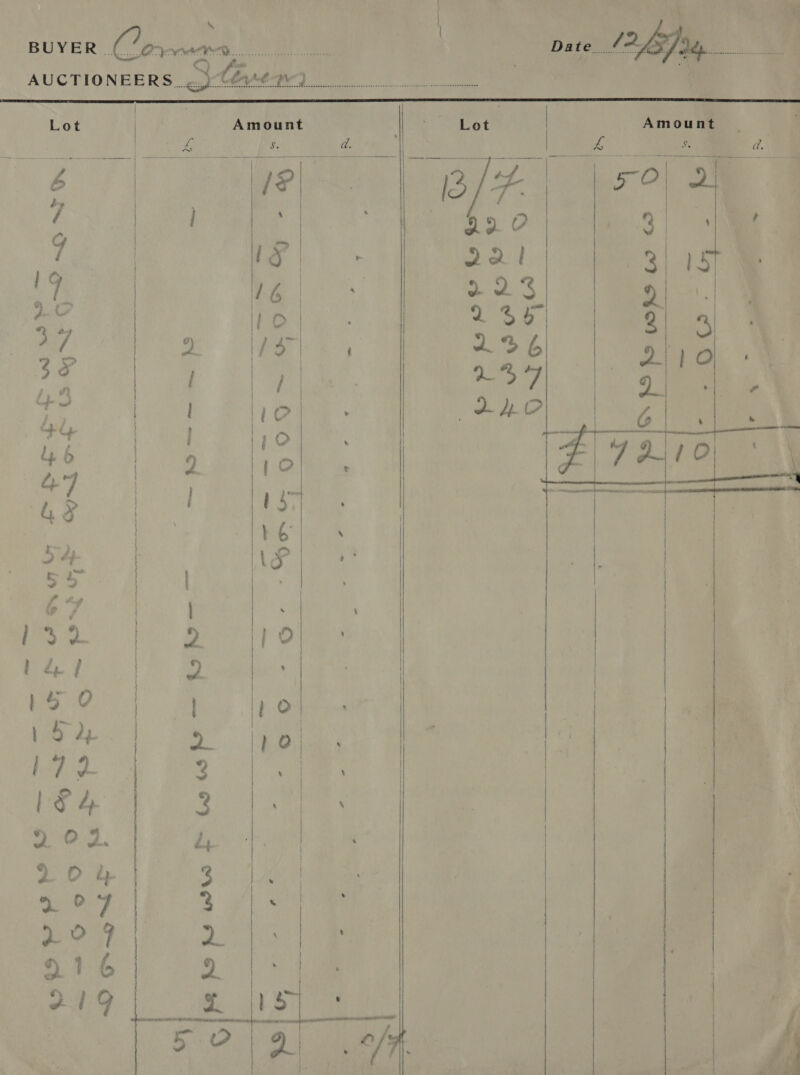 BUYER Date
AUCTIONEERS Stevens
Lot Amount Lot Amount
£ s. d. £ s. d.
6 18 B/F. 50 2
7 1 220 3
9 18 221 3 15
19 16 223 2
20 10 235 3 3
37 2 15 236 2 10
38 1 1 237 2
43 1 10 240 6
44 1 10 £ 72 10
46 2 10
47 1 15
48 16
54 18
55 1
67 1
132 2 10
141 2
150 1 10
154 2 10
172 3
184 3
202 4
204 3
207 3
209 2
216 2
219 2 15
50 2 c/f.